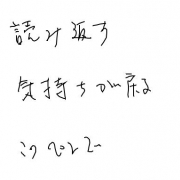 読み返す
気持ちが戻る
この